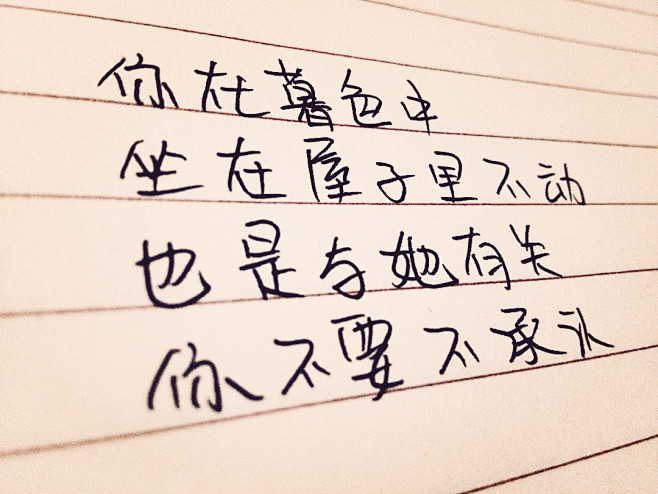 你在暮色中
坐在屋子里不动
也是与她有关
你不要不承认